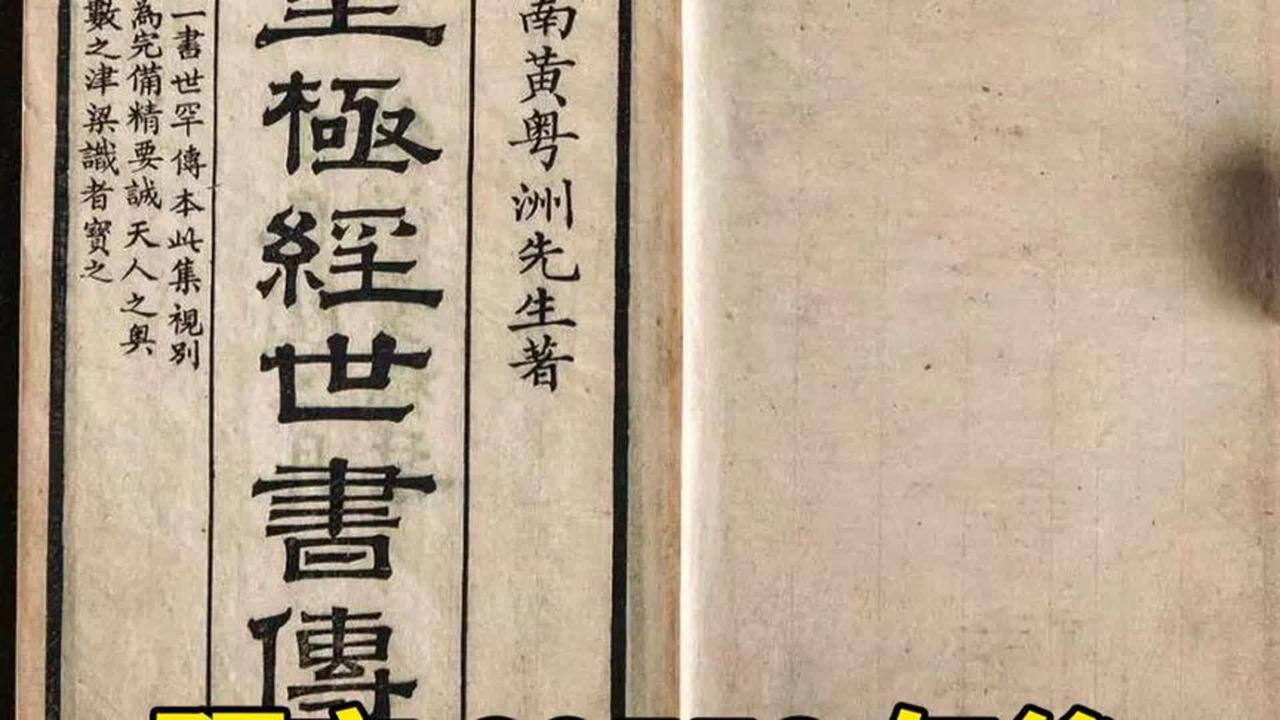 南黄粤洲先生著
皇極經世書傳
一書世罕傳本此集視別
為完備精要誠天人之奥
數之津梁識者寶之